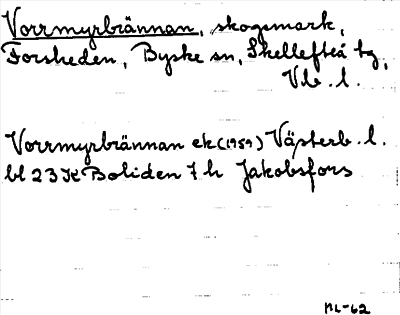 Vorrmyrbrännan, skogsmark,
Forsheden, Byske sn, Skellefteå tg,
Vb. l.
Vorrmyrbrännan ek (1959) Västerb. l.
bl 23K Boliden 7 h Jakobsfors
ML-62